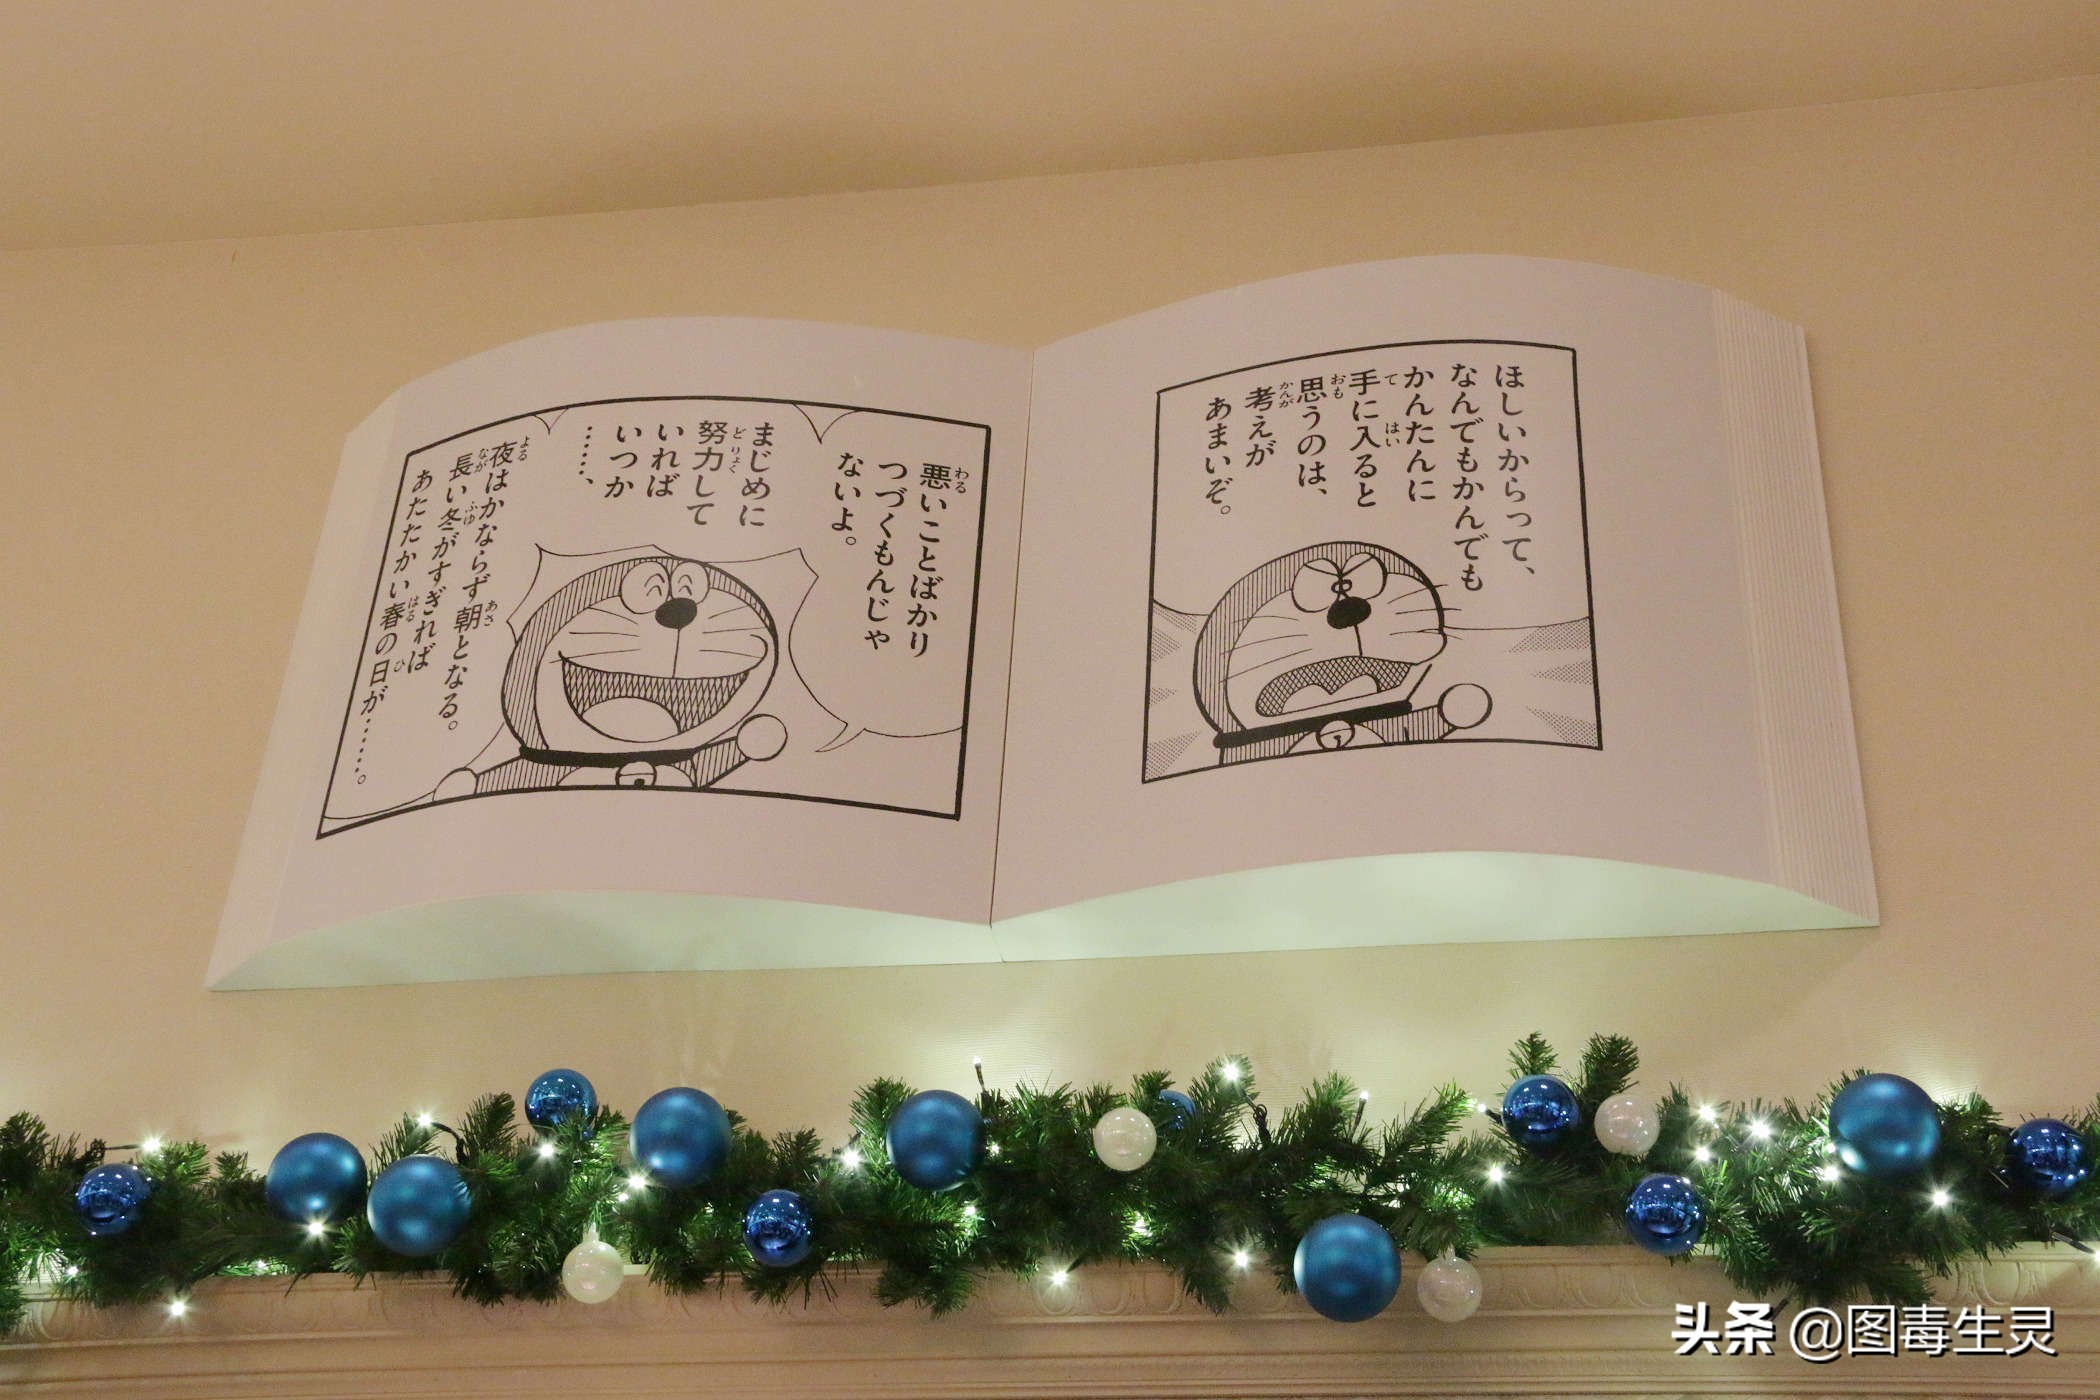 ほしいからって、
なんでもかんでも
かんたんに
手に入ると
思うのは、
考えが
あまいぞ。
悪いことばかり
つづくもんじゃ
ないよ。
まじめに
努力して
いれば
いつか
……、
夜はかならず朝となる。
長い冬がすぎれば
あたたかい春の日が……。
头条 @图毒生灵